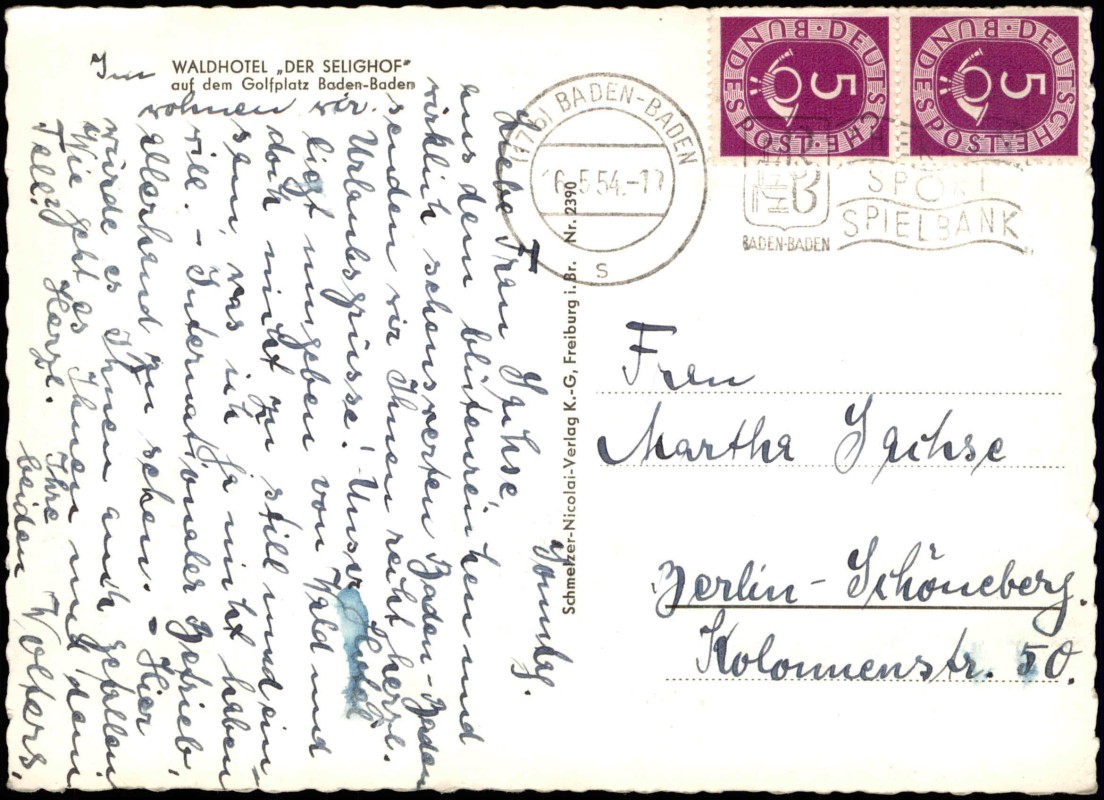 Im
WALDHOTEL „DER SELIGHOF"
auf dem Golfplatz Baden-Baden
wohnen wir.
Sonntag.
Liebe Frau Sachse,
aus dem blütenreichen und
wirklich sehenswerten Baden-Baden
senden wir Ihnen recht herzl.
Urlaubsgrüsse! Unser Hotel
liegt umgeben von Wald und
doch nicht zu still und ein-
sam, was ich ja nicht haben
will. – Internationaler Betrieb,
allerhand zu sehen. – Hier
würde es Ihnen auch gefallen
Wie geht es Ihnen und dem
Telli? Herzl. Ihre
beiden Wolters.
Schmelzer-Nicolai-Verlag K.-G, Freiburg i. Br. Nr. 2390
(17b) BADEN-BADEN
16.5.54.-17
s
DEUTSCHE BUNDESPOST
5
DEUTSCHE BUNDESPOST
5
BADEN-BADEN
SPORT
SPIELBANK
Frau
Martha Sachse
Berlin-Schöneberg.
Kolonnenstr. 50.